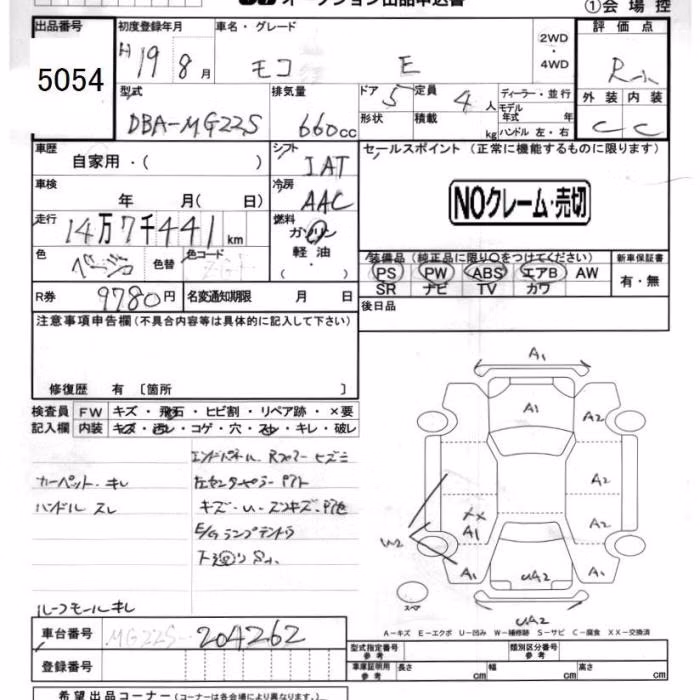 オークション出品申込書
①会場控
出品番号 初度登録年月 車名・グレード 評価点
5054 H19 8月 モコ E 2WD・4WD R
型式 排気量 ドア 定員 ディーラー・並行 外装 内装
DBA-MG22S 660cc 5 4人 モデル年式 年 C C
形状 積載 kg ハンドル 左・右
車歴 シフト セールスポイント（正常に機能するものに限ります）
自家用・（ ） IAT
車検 冷房
年 月（ 日） AAC NOクレーム・売切
走行 燃料
14万7千441km ガソリン
軽油
・（ ）
色 色替 色コード 装備品（純正品に限り○をつけてください） 新車保証書
ベージュ PS PW ABS エアB AW 有・無
SR ナビ TV カワ
R券 9780円 名変通知期限 月 日 後日品
注意事項申告欄（不具合内容等は具体的に記入して下さい）
修復歴 有 〔箇所 〕
検査員 FW キズ・飛石・ヒビ割・リペア跡・×要
記入欄 内装 キズ・汚レ・コゲ・穴・スレ・キレ・破レ
カーペット キレ
ハンドル スレ
ルーフモールキレ
A1
A1 A2
A2
XX A2
A1
W2
A1 UA2 A1
スペア
UA2
A－キズ E－エクボ U－凹み W－補修跡 S－サビ C－腐食 XX－交換済
車台番号 MG22S- 204262
登録番号
型式指定番号 参考 類別区分番号 参考
車庫証明用 参考 長さ cm 幅 cm 高さ cm
希望出品コーナー（コーナーは各会場により異なります。）